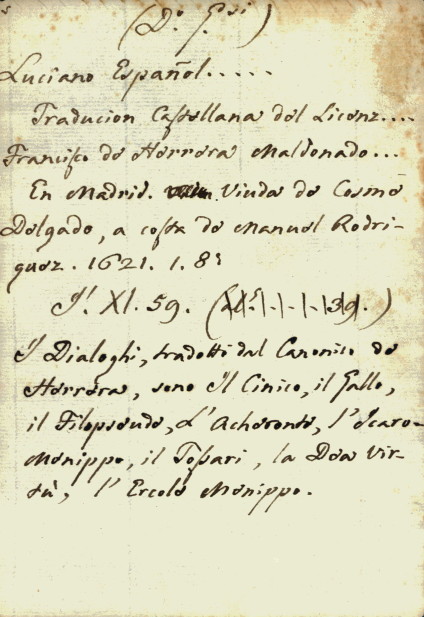 (D. G.)
Luciano Español.....
Traducion Castellana del Licenz....
Francisco de Herrera Maldonado...
En Madrid. Viuda de Cosme
Delgado, a costa de Manuel Rodri-
guez. 1621. 1. 8:
J! XI. 59. (
I Dialoghi, tradotti dal Canonico de
Herrera, sono Il Cinico, il Gallo,
il Filopseude, L'Acheronte, l'Icaro-
Menippo, il Tossari, la Dea Vir-
tù, l'Ercole Menippo.